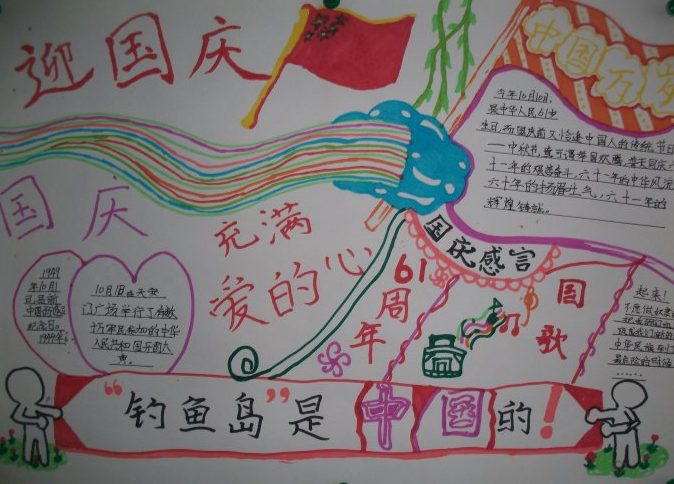 迎国庆
中国万岁
今年10月10日,
是中华人民61也
生日,而国庆前又恰逢中国人的传统节日
——中秋节,
十一年的艰苦奋斗,六十一年的中华风流
六十年的扬眉斗气,六十一年的
辉煌铸就。
国庆
充满
爱的心
国庆感言
61周年
国歌
1949
年10月1
日,是新
中国的
纪念日。
10月1日在天安
门广场举行了有数
十万军民参加的中华
人民共和国开国大
典。
起来!
不愿做奴隶
把我们的血肉
筑成我们新的
中华民族到了
最危险的时候
……
“钓鱼岛”是中国的!